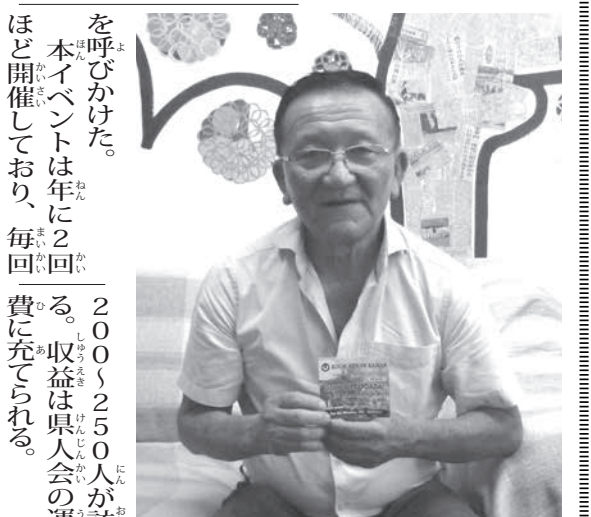 を呼びかけた。
本イベントは年に2回
ほど開催しており、毎回
200〜250人が
る。収益は県人会の運
費に充てられる。